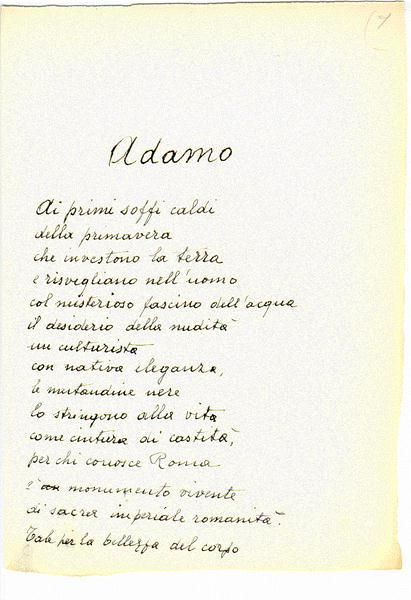 7
Adamo
Ai primi soffi caldi
della primavera
che investono la terra
e risvegliano nell'uomo
col misterioso fascino dell'acqua
il desiderio della nudità
un culturista
con nativa eleganza,
le mutandine nere
lo stringono alla vita
come cintura di castità,
per chi conosce Roma
è un monumento vivente
di sacra imperiale romanità.
Tale per la bellezza del corpo